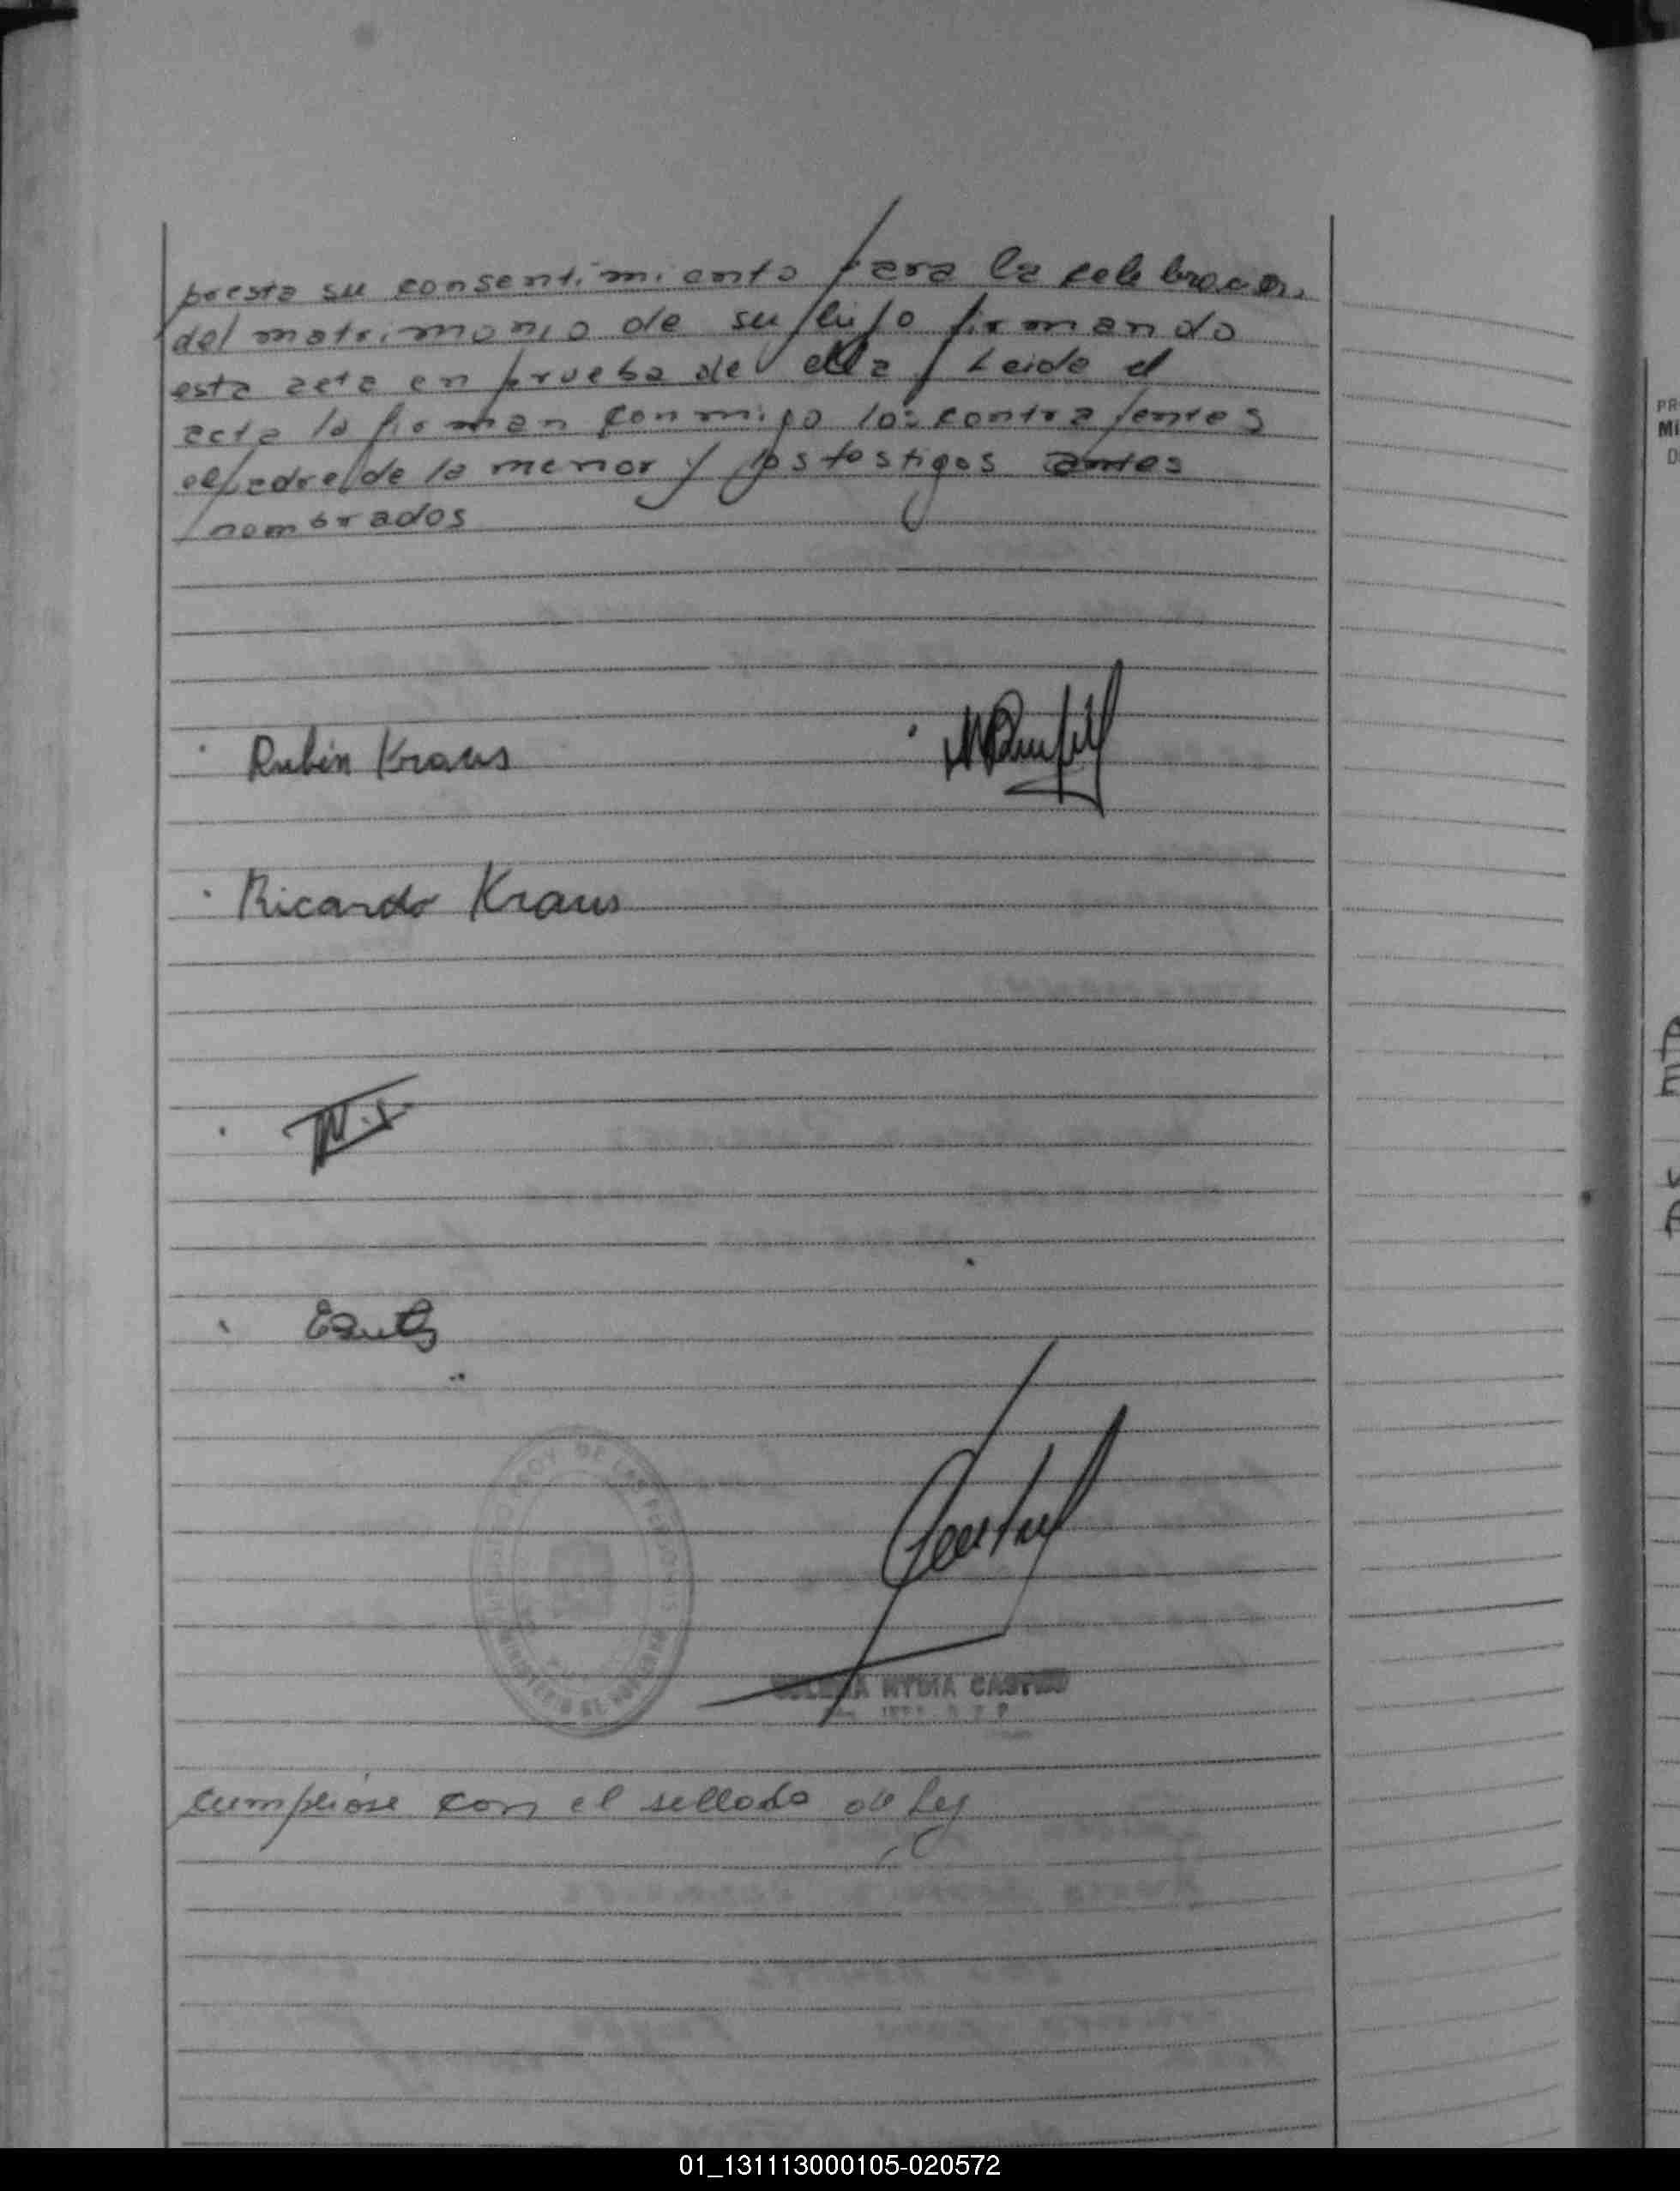 presta su consentimiento para la celebracion
del matrimonio de su hijo firmando
esta acta en prueba de ella Leida el
acta la firman conmigo los contrayentes
el padre de la menor y los testigos antes
nombrados
Rubén Kraus
Ricardo Kraus
DE LAS PERSONAS
NYDIA CASTRO
cumpliose con el sellado de ley
PR
MI
D
01_131113000105-020572